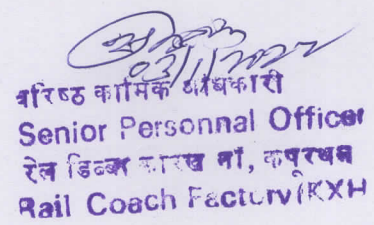 03/11/2022
वरिष्ठ कार्मिक अधिकारी
Senior Personnal Officer
रेल डिब्बा कारखाना, कपूरथला
Rail Coach Factory (KXH